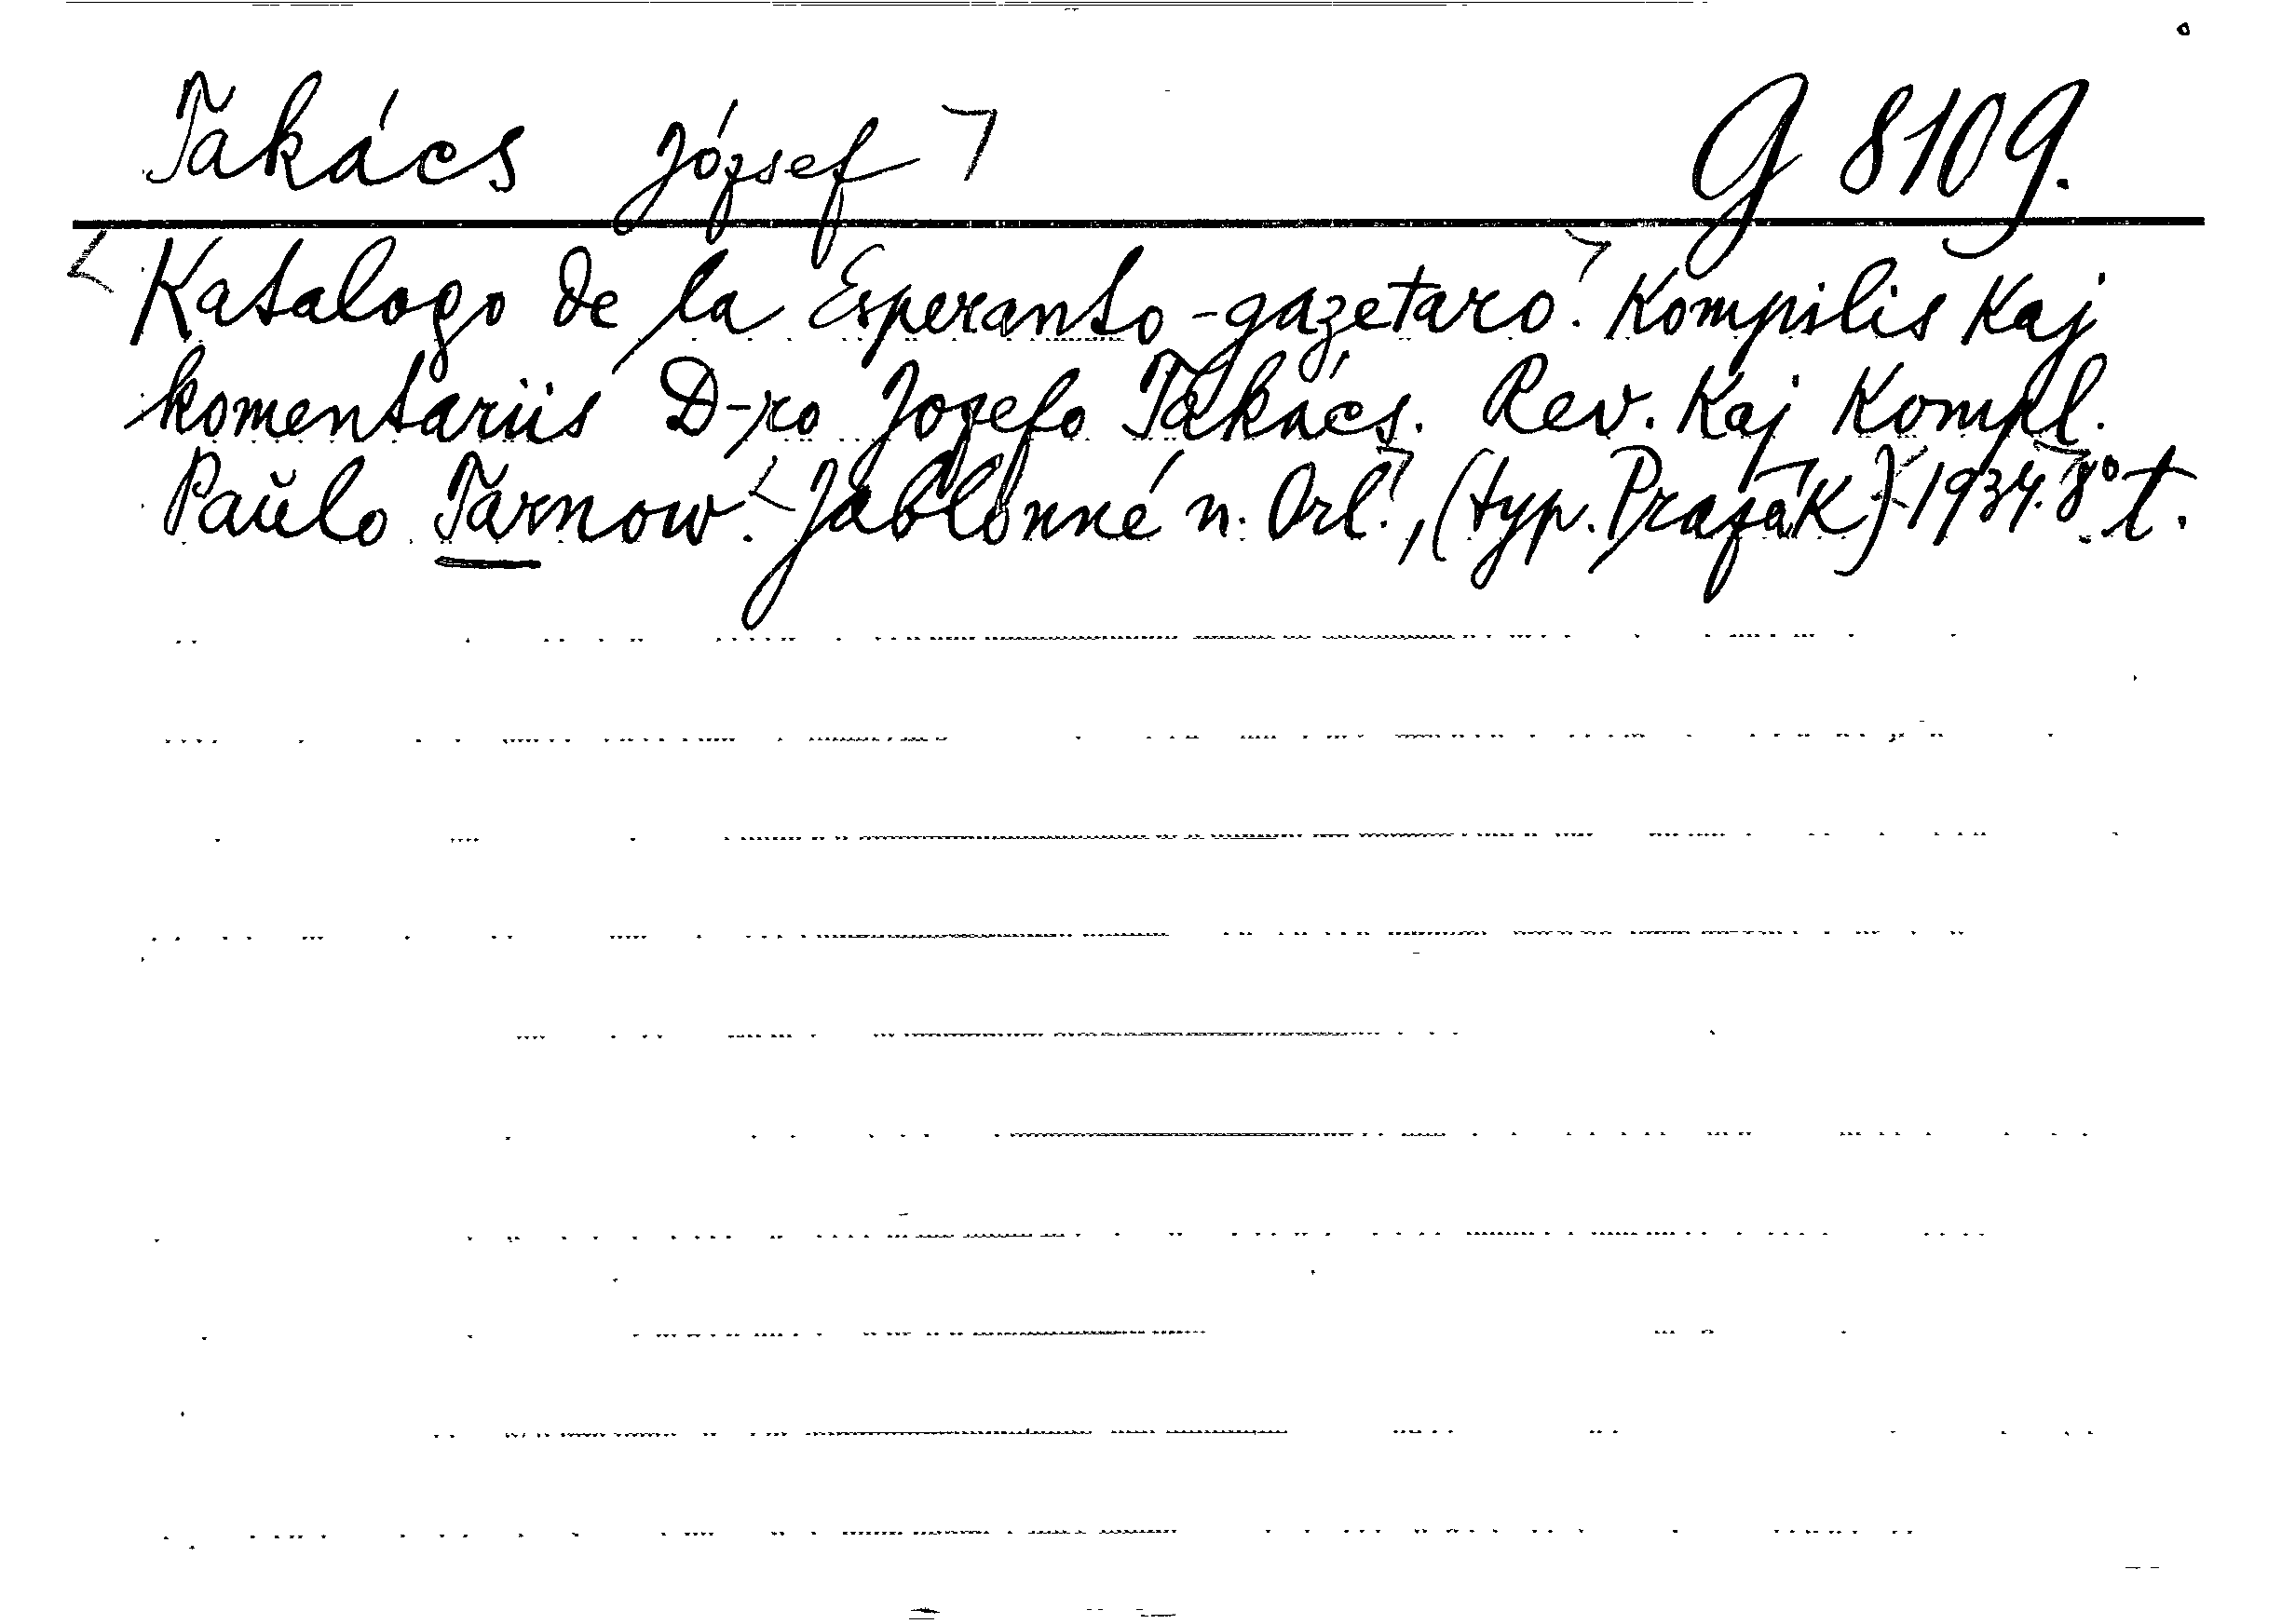 Takács József G 8109.
Katalogo de la Esperanto-gazetaro. Kompilis kaj
komentariis D-ro Jozefo Takács. Rev. Kaj Kompl.
Paŭlo Tarnow. Jablonné n. Orl., (typ. Pražák) 1934. 8° t.